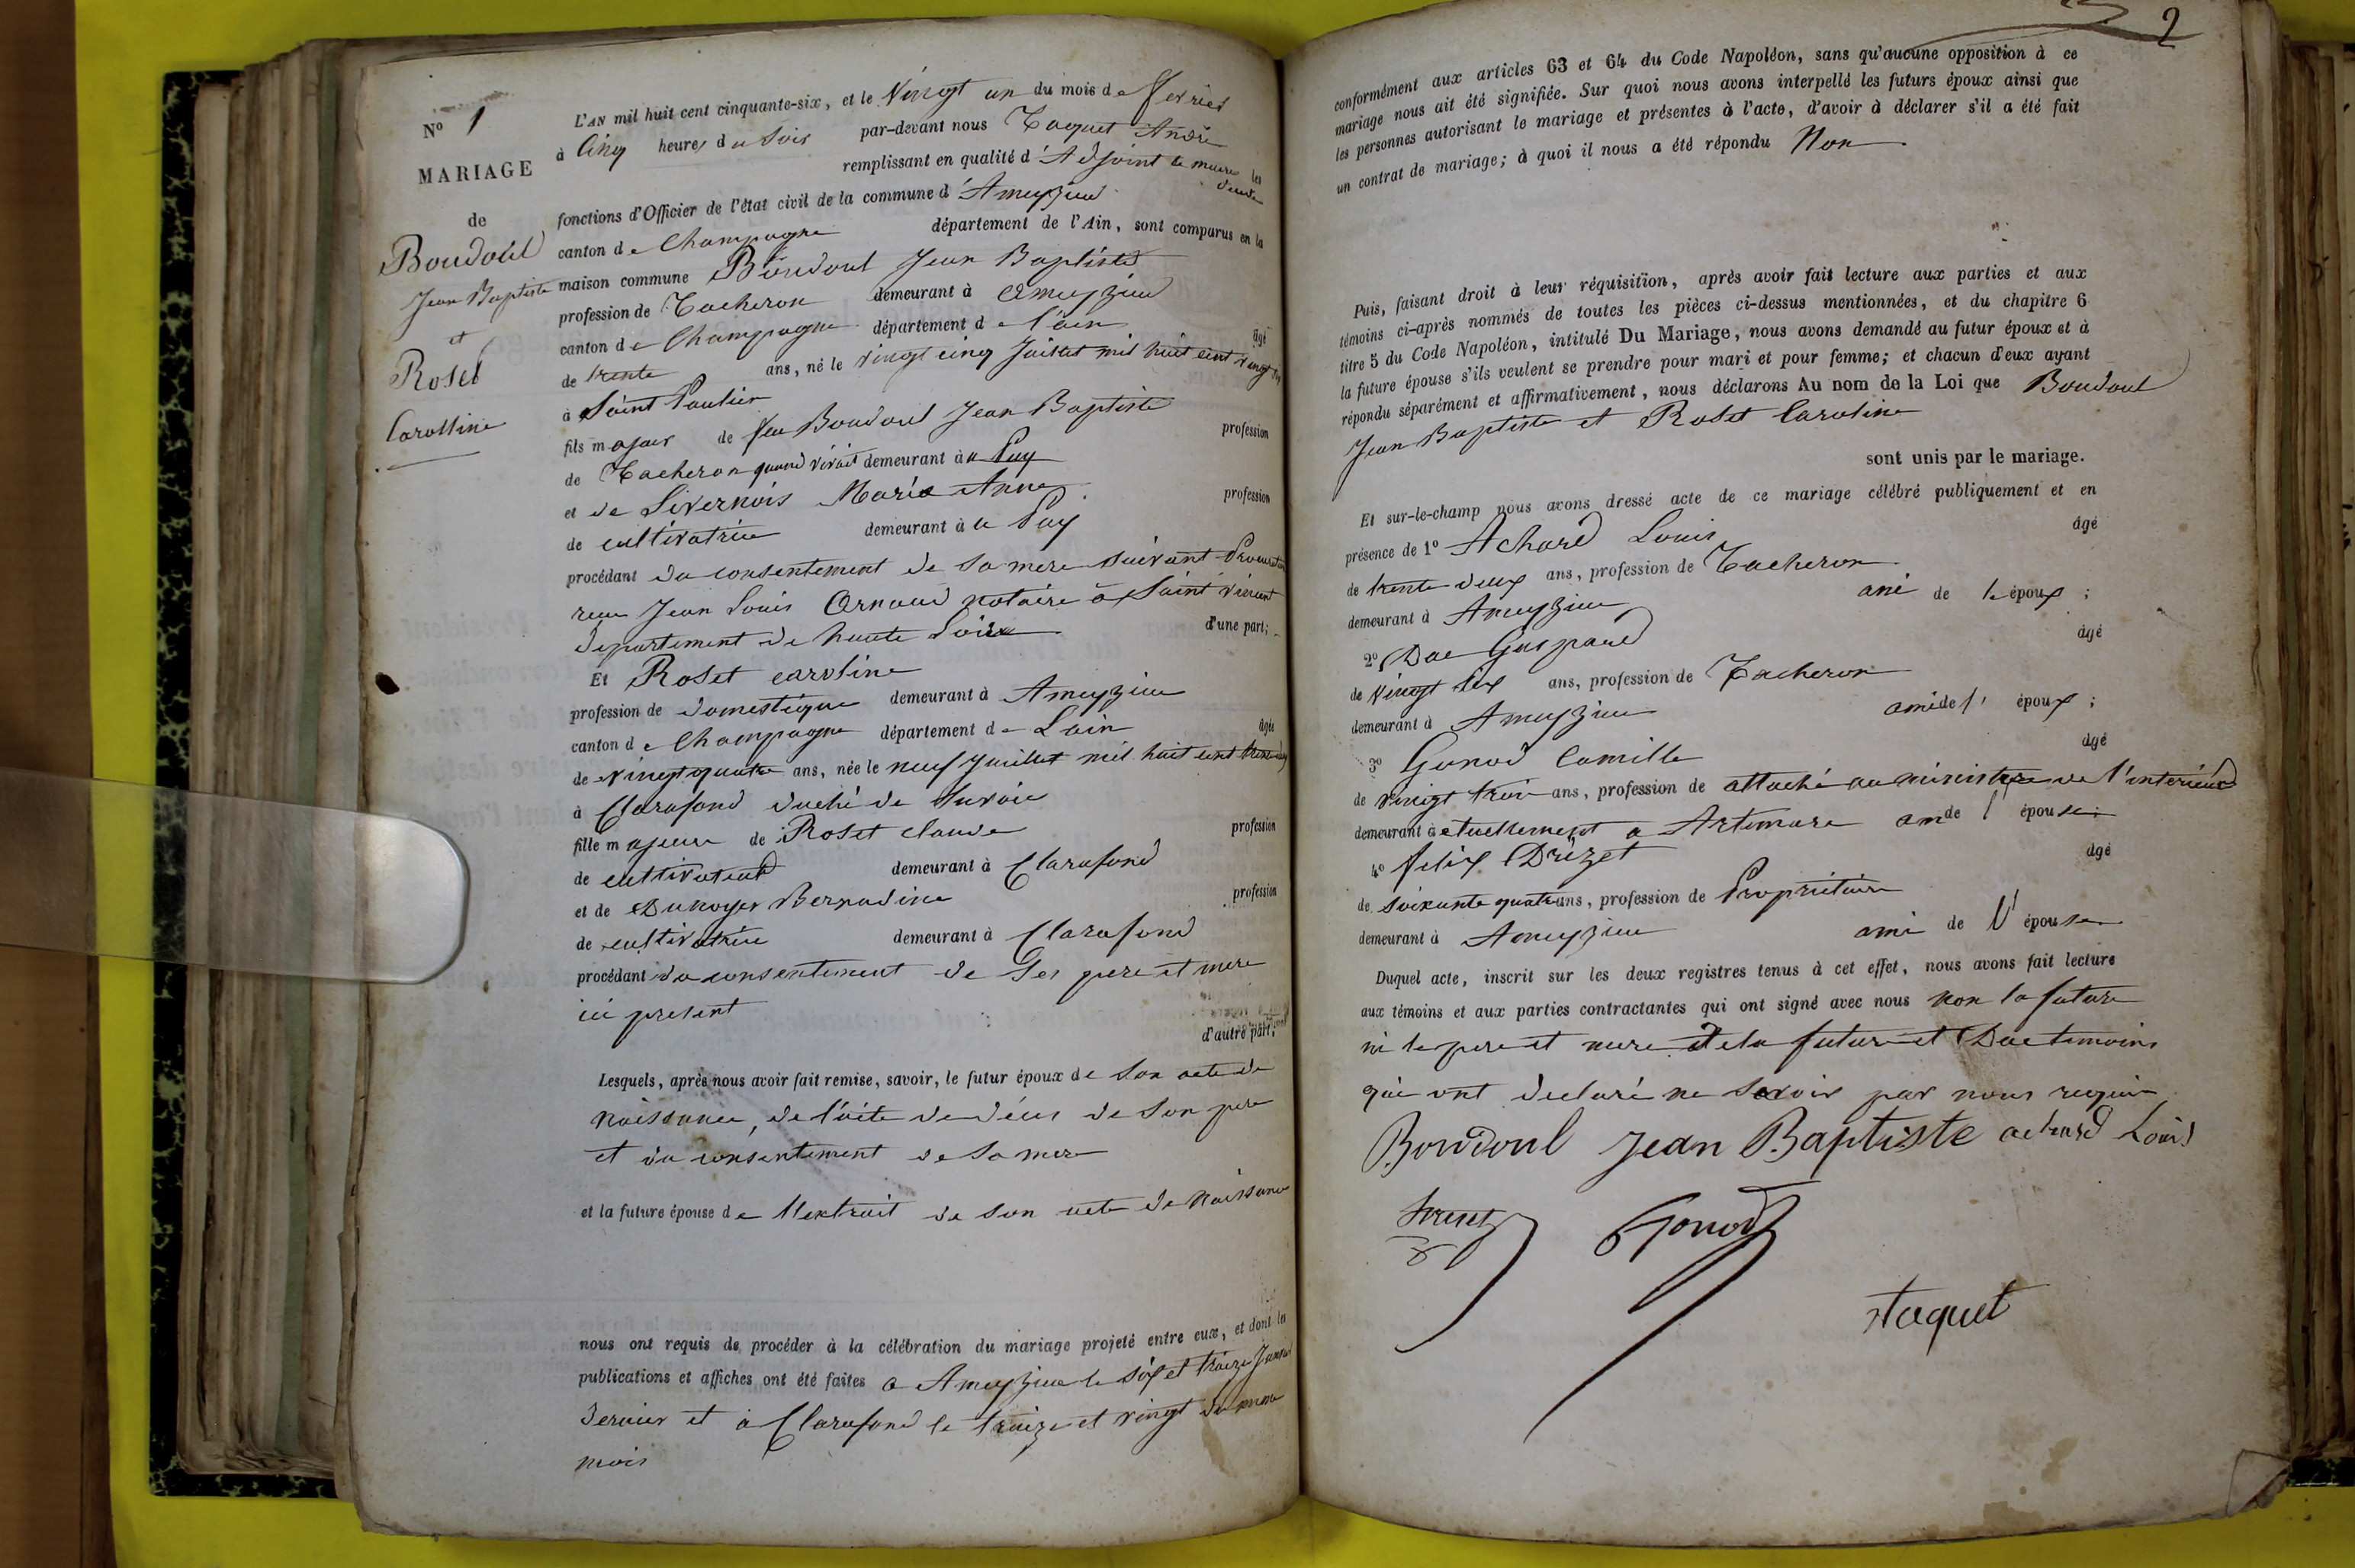 N° 1
MARIAGE
de
Boudoul
Jean Baptiste
et
Roset
Carolline
L'AN mil huit cent cinquante-six, et le Vingt un du mois de fevrier
à Cinq heures du Soir par-devant nous Taquet André
remplissant en qualité d'Adjoint le maire les
fonctions d'Officier de l'état civil de la commune d'Ameyzieu
canton de Champagne département de l'Ain, sont comparus en la
maison commune Boudoul Jean Baptiste
profession de Tacheron demeurant à Ameyzieu
canton de Champagne département de l'ain âgé
de trente ans, né le vingt cinq Juillet mil huit cent vingt
à Saint Paulien
fils majeur de feu Boudoul Jean Baptiste profession
de Tacheron quand vivait demeurant à u Puy
et de Livernois Marie Anne profession
de cultivatrice demeurant à u Puy
procédant du consentement de sa mere suivant Procuration
recue Jean Louis Arnaud notaire à Saint Vincent
departement de haute Loire d'une part;
Et Roset caroline
profession de domestique demeurant à Ameyzieu
canton de Champagne département de Lain âgée
de vingt quatre ans, née le neuf Juillet mil huit cent
à Clarafond duché de Savoie
fille majeure de Roset claude profession
de cultivateur demeurant à Clarafond
et de Dunoyer Bernadine profession
de cultivatrice demeurant à Clarafond
procédant du consentement de Ses pere et mere
ici present
d'autre part;
Lesquels, après nous avoir fait remise, savoir, le futur époux de son acte de
naissance, de l'acte de déces de son pere
et du consentement de sa mere
et la future épouse de l'extrait de son acte de naissance
nous ont requis de procéder à la célébration du mariage projeté entre eux, et dont les
publications et affiches ont été faites a Ameyzieu le six et treize Janvier
dernier et à Clarafond le treize et vingt du meme
mois
2
conformément aux articles 63 et 64 du Code Napoléon, sans qu'aucune opposition à ce
mariage nous ait été signifiée. Sur quoi nous avons interpellé les futurs époux ainsi que
les personnes autorisant le mariage et présentes à l'acte, d'avoir à déclarer s'il a été fait
un contrat de mariage; à quoi il nous a été répondu Non
Puis, faisant droit à leur réquisition, après avoir fait lecture aux parties et aux
témoins ci-après nommés de toutes les pièces ci-dessus mentionnées, et du chapitre 6
titre 5 du Code Napoléon, intitulé Du Mariage, nous avons demandé au futur époux et à
la future épouse s'ils veulent se prendre pour mari et pour femme; et chacun d'eux ayant
répondu séparément et affirmativement, nous déclarons Au nom de la Loi que Boudoul
Jean Baptiste et Roset Caroline
sont unis par le mariage.
Et sur-le-champ nous avons dressé acte de ce mariage célébré publiquement et en
présence de 1° Achard Louis âgé
de trente deux ans, profession de Tacheron
demeurant à Ameyzieu ami de l'époux;
2° Duc Gaspard âgé
de vingt six ans, profession de Tacheron
demeurant à Ameyzieu ami de l'époux;
3° Gonod Camille âgé
de vingt trois ans, profession de attaché au ministere de l'interieur
demeurant à ctuellement a Artemare ami de l'épouse;
4° felix Drizet âgé
de soixante quatre ans, profession de Propriétaire
demeurant à Ameyzieu ami de l'épouse
Duquel acte, inscrit sur les deux registres tenus à cet effet, nous avons fait lecture
aux témoins et aux parties contractantes qui ont signé avec nous non la future
ni le pere et mere de la future et Duc temoins
qui ont declaré ne savoir par nous requis
Boudoul Jean Baptiste achard Louis
Gonod
Taquet